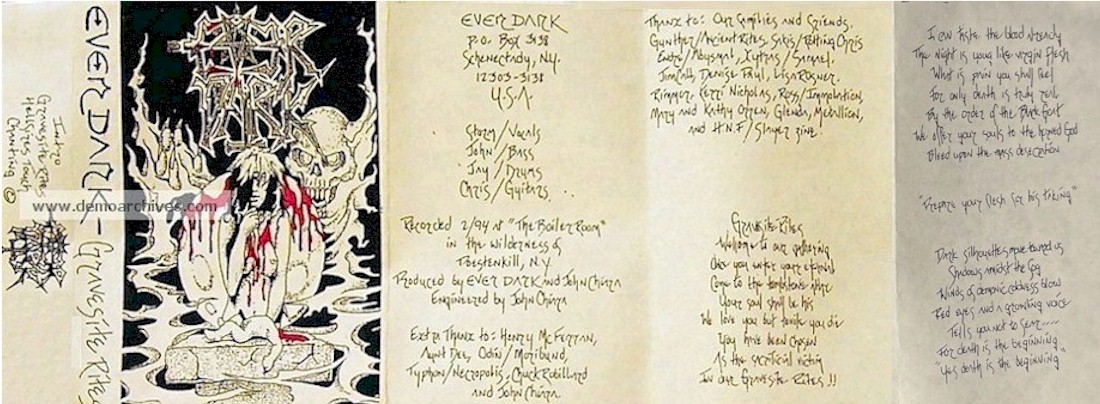 Intro
Gravesite Rites
Hellspits Touch
Chanting
EVER DARK - GRAVESITE RITES
EVER DARK
www.demoarchives.com
EVER DARK
P.O. Box 3138
Schenectady, N.Y.
12303-3138
U.S.A.
Storm/Vocals
John/Bass
Jay/Drums
Chris/Guitars
Recorded 2/94 at "The Boiler Room"
in the wilderness of
Poestenkill, N.Y.
Produced by EVER DARK and John
Engineered by John
Extra Thanx to: Henry McFerran,
Aunt Dee, Odin/Moribund,
Typhon/Necropolis, Chuck Robillard
and John
Thanx to: Our Families and Friends.
Gunther/Ancient Rites, Sakis/Rotting Chris
/Abysmal, Xytras/Samael,
Denise Paul, Lisa Rosner,
Rimmer, Kerri Nicholas, Ross/Immolation,
Mary and Kathy Glenda, Metallion,
and H.N.F/Slayer zine.
Gravesite Rites
Welcome to our gathering
you enter your
Come to the tombstone altar
Your soul shall be his
We love you but tonite you die
You have been chosen
As the sacrificial victim
In our Gravesite Rites!!
I can taste the blood already
The night is young like virgin flesh
What is pain you shall feel
For only death is truly real
By the order of the Black Goat
We offer your souls to the horned God
Bleed upon the mass desecration
"Prepare your flesh for his taking"
Dark silhouettes move toward us
Shadows amidst the fog
Winds of demonic coldness blow
Red eyes and a growling voice
Tells you not to fear----
For death is the beginning
"Yes death is the beginning"